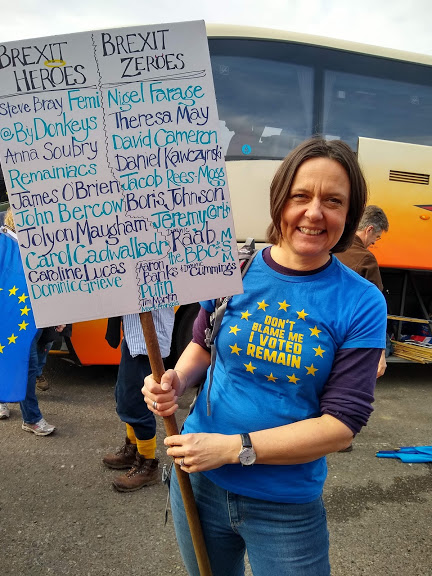 BREXIT HEROES
Steve Bray Femi
@ByDonkeys
Anna Soubry
Remainiacs
James O'Brien
John Bercow
Jolyon Maugham
Carol Cadwalladr
Caroline Lucas
Dominic Grieve
BREXIT ZEROES
Nigel Farage
Theresa May
David Cameron
Daniel Kawczynski
Jacob Rees-Mogg
Boris Johnson
Jeremy Corb
Raab
the BBC
Aaron Banks
Cummings
Putin
Tim Martin
DON'T
BLAME ME
I VOTED
REMAIN